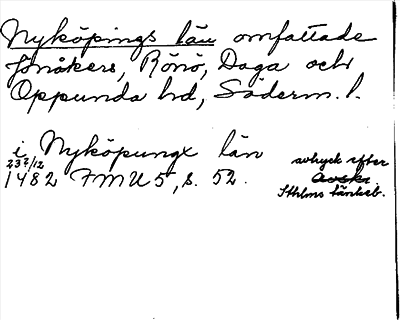 Nyköpings län omfattade
Jönåkers, Rönö, Daga och
Oppunda hd, Söderm. l.
i Nyköpungx län
1482 23?/12 FMU 5, s. 52.
avtryck efter
Avskr.
Sthlms tänkeb.